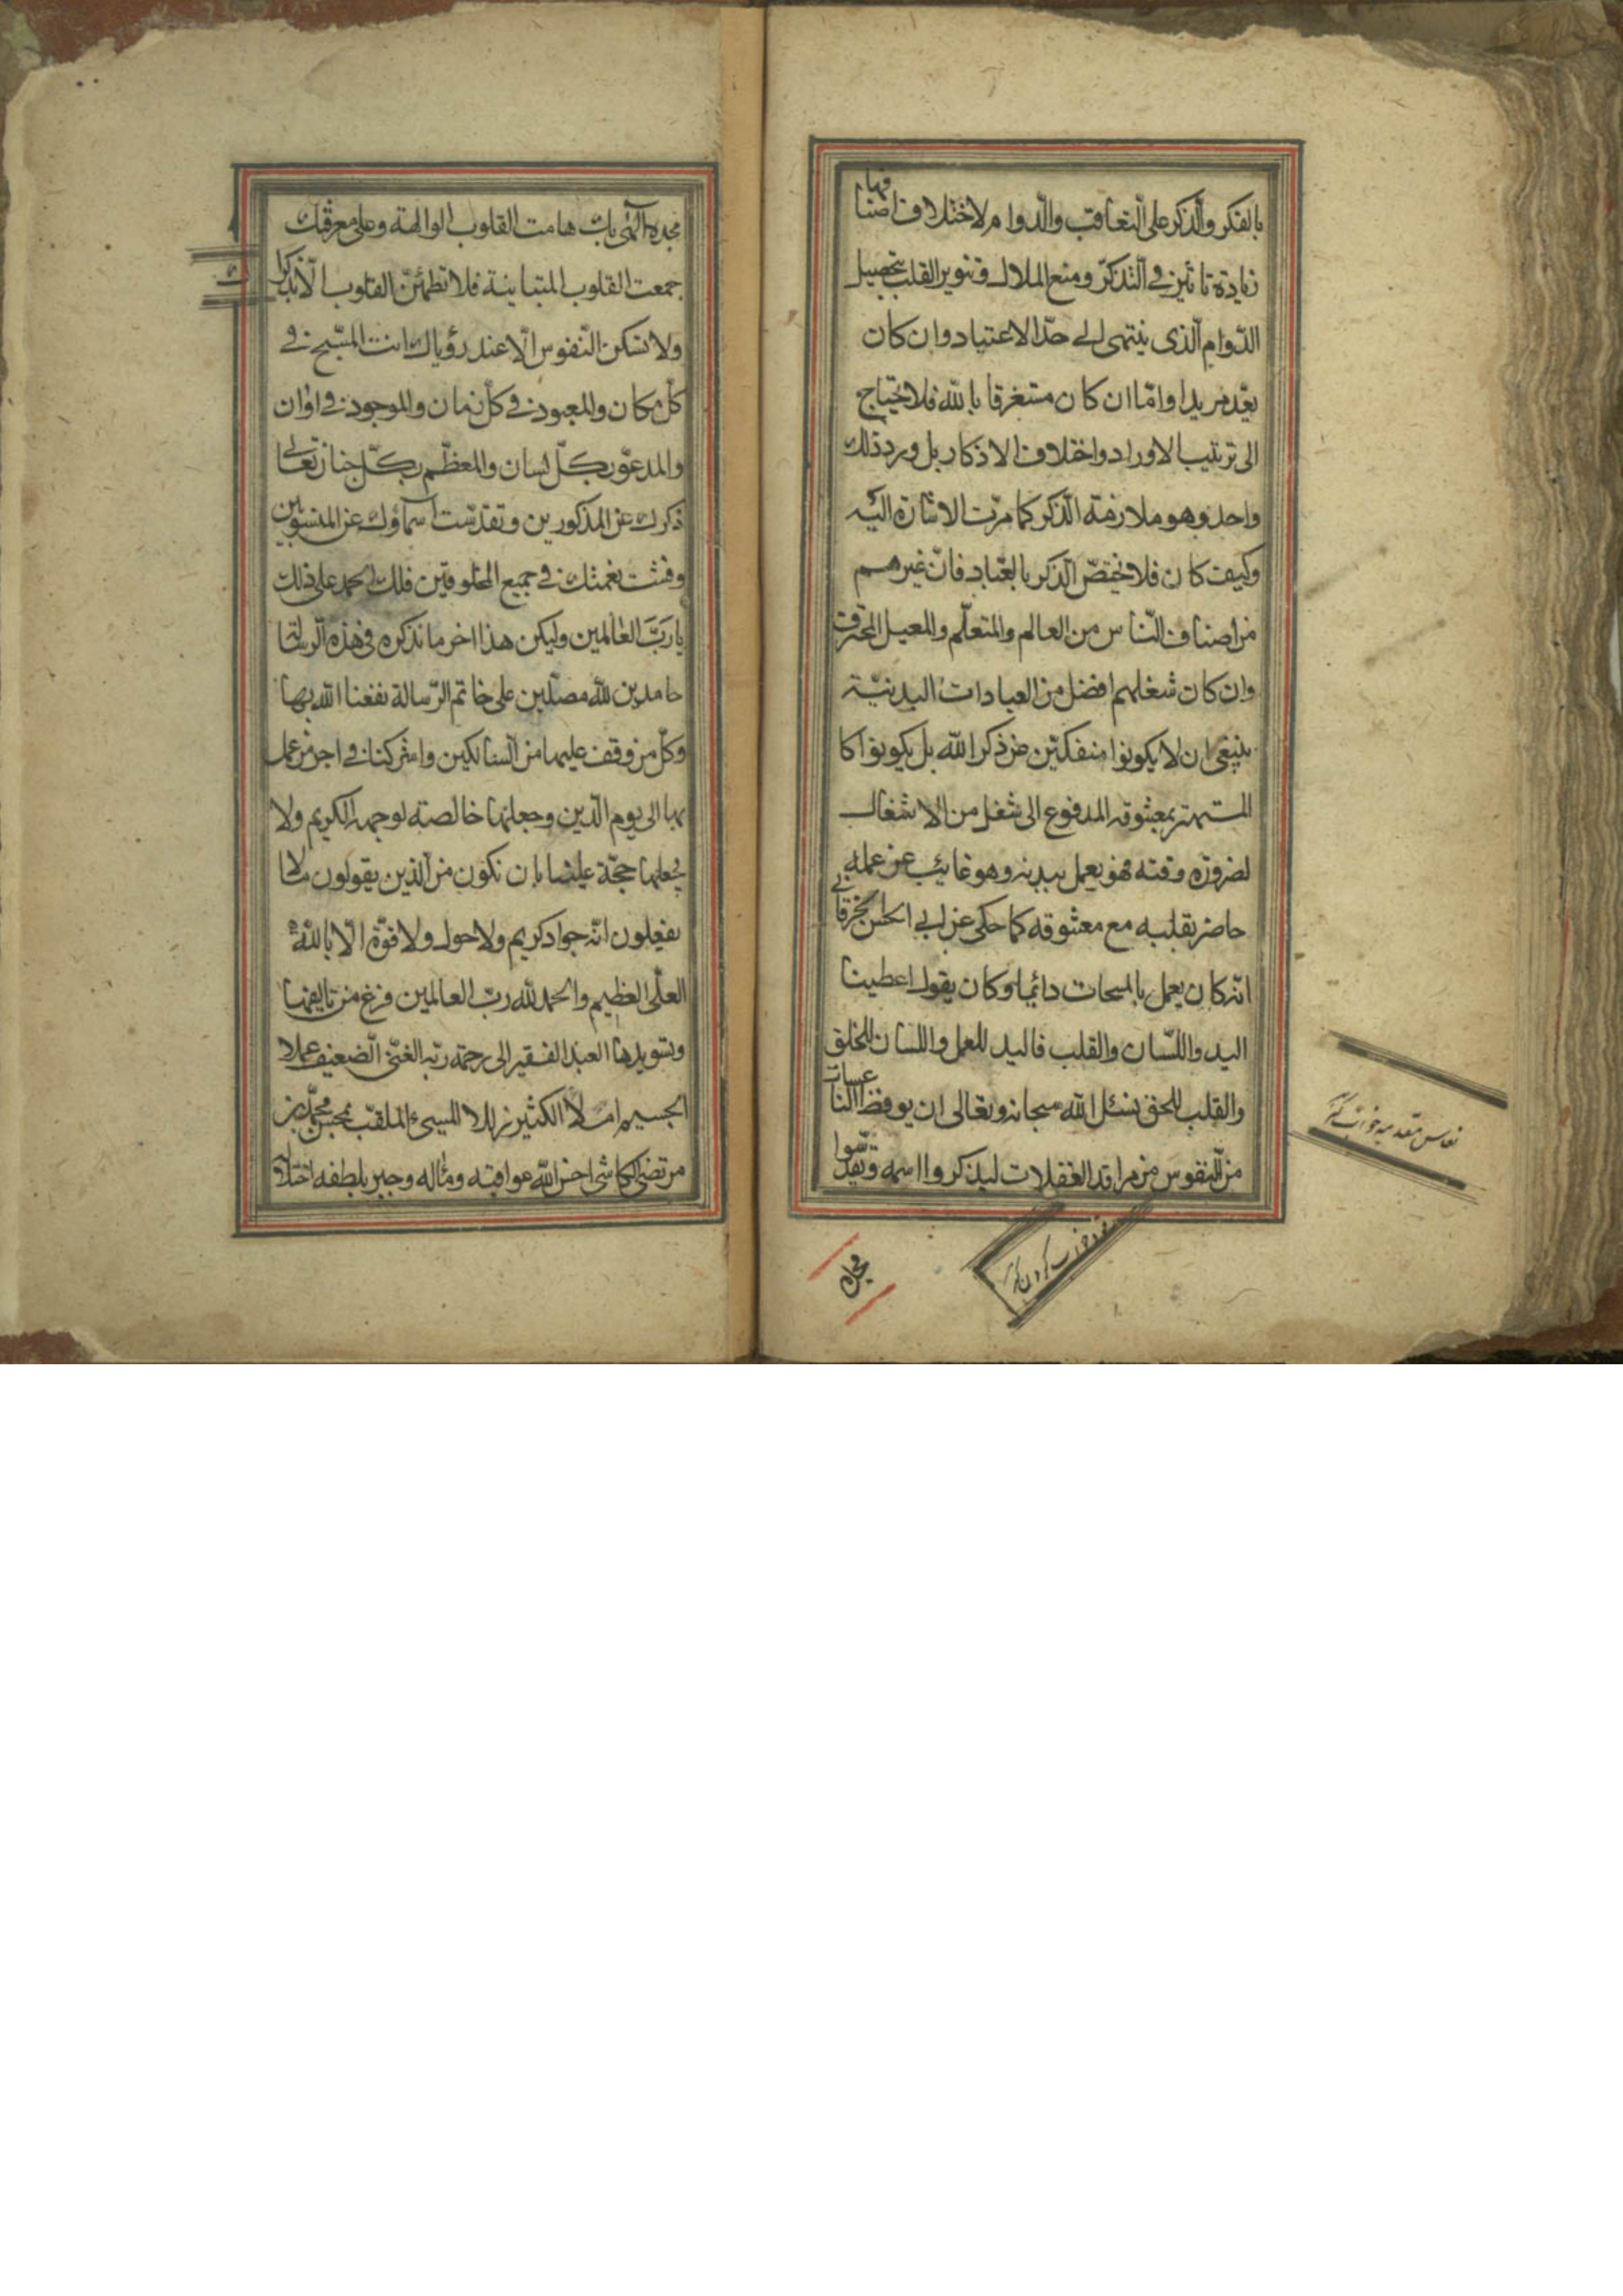 بالفكر والذكر على التعاقب والدوام ولاختلاف اصنافها
زيادة تاثير في التذكر ومنع الملال وتنوير القلب بتحصيل
الدوام الذى ينتهى الى حد الاعتياد وان كان
بعد مريدا واما ان كان مستغرقا بالله فلا يحتاج
الى ترتيب الاوراد واختلاف الاذكار بل ورد ذلك
واحد وهو ملازمة الذكر كما مرت الاشارة اليه
وكيف كان فلا يختص الذكر بالعباد فان غيرهم
من اصناف الناس من العالم والمتعلم والمعيل المحترف
وان كان شغلهم افضل من العبادات البدنية
ينبغى ان لا يكونوا منفكين عن ذكر الله بل يكونوا كا
المستهتر بمعشوقه المدفوع الى شغل من الاشغال
لضرورة وقته فهو يعمل ببدنه وهو غائب عن عمله
حاضر بقلبه مع معشوقه كما حكى عن ابى الحسن الخرقانى
انه كان يعمل بالمسحات دائما وكان يقول اعطينا
اليد واللسان والقلب فاليد للعمل واللسان للخلق
والقلب للحق نسئل الله سبحانه وتعالى ان يوفظ الناعسات
من النفوس من مراقد الغفلات ليذكروا اسمه وتقدسوا
مجده
مجده الهى بك هامت القلوب الوالهة وعلى معرفتك
جمعت القلوب المتباينة فلا تطمئن القلوب الا بذكراك
ولا تسكن النفوس الا عند رؤياك انت المسبح فى
كل مكان والمعبود فى كل زمان والموجود فى اوان
والمدعو بكل لسان والمعظم بكل جنان تعالى
ذكرك عن المذكورين وتقدست اسماؤك عن المنسوبين
وفشت نعمتك فى جميع المخلوقين فلك الحمد على ذلك
يا رب العالمين وليكن هذا اخر ما نذكره فى هذه الرسالة
حامدين لله مصلين على خاتم الرسالة نفعنا الله بها
وكل من وقف عليها من السالكين واشركنا فى اجر من عمل
بها الى يوم الدين وجعلها خالصة لوجهه الكريم ولا
يجعلها حجة علينا بان نكون من الذين يقولون ما لا
يفعلون انه جواد كريم ولا حول ولا قوة الا بالله
العلى العظيم والحمد لله رب العالمين فرغ من تاليفها
وتسويدها العبد الفقير الى رحمة ربه الغنى الضعيف عملا
الجسيم املا الكثير زللا المسىء الملقب بمحسن محمد بن
مرتضى الكاشى احسن الله عواقبه وماله وجبر بلطفه اختلاله